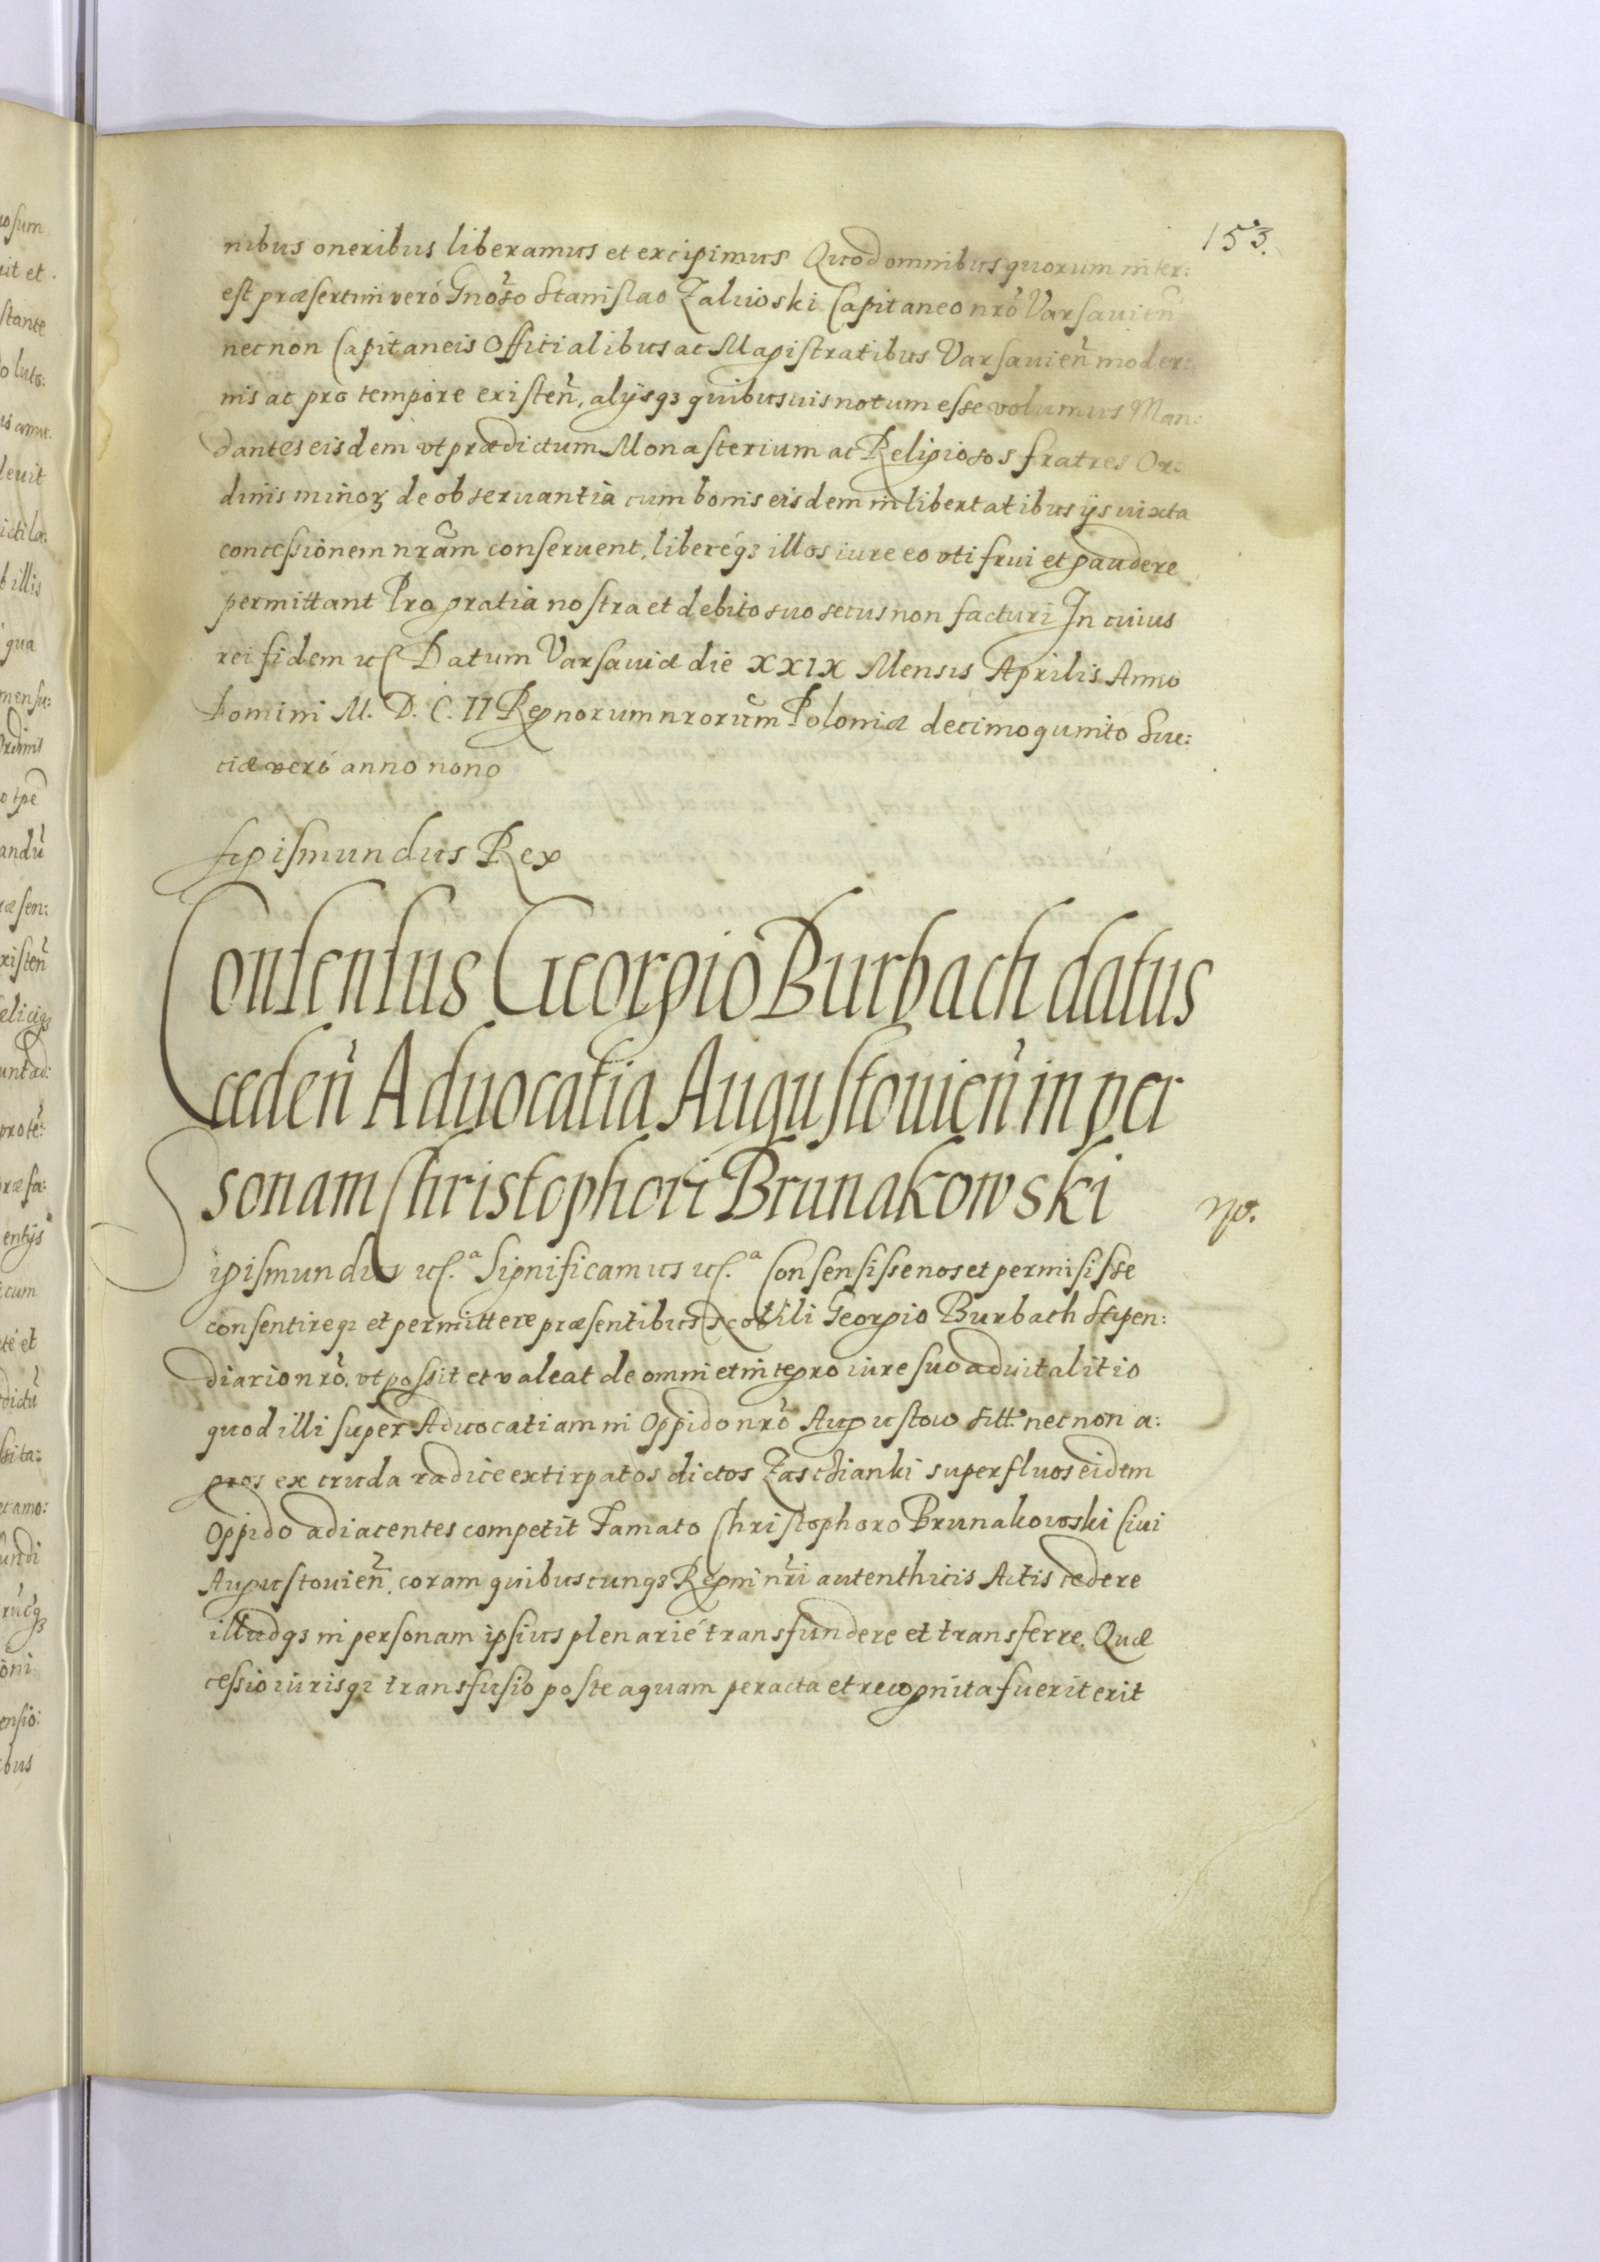 153.
nibus oneribus liberamus et excipimus Quod omnibus quorum inter:
est præsertim veró Gnõso Stanislao Zaluioski Capitaneo nrõ Varsauień
necnon Capitaneis Officialibus ac Magistratibus Varsauień moder:
nis ac pro tempore existeń, alijsqȝ quibusuis notum esse volumus Man:
dantes eisdem vt prædictum Monasterium ac Religiosos fratres Or:
dinis minoꝝ de obseruantia cum bonis eisdem in libertatibus ijs iuxta
concessionem nrãm conseruent, liberéqȝ illos iure eo vti frui et gaudere
permittant Pro gratia nostra et debito suo secus non facturi In cuius
rei fidem etc Datum Varsauiæ die XXIX Mensis Aprilis Anno
Domini M. D. C. II Regnorum nrorũm Poloniæ decimoquinto Sue:
ciæ veró anno nono
Sigismundus Rex
Consensus Georgio Burbach datus
cedeń Aduocatia Augustouień in per
sonam Christophori Brunakowski
no.
Sigismundus etc.ª Significamus etc.ª Consensisse nos et permisisse
consentireqȝ et permittere præsentibus Georgio Burbach Stipen:
diario nrõ, vt possit et valeat de omni et integro iure suo aduitalitio
quod illi super Aduocatiam in Oppido nrõ Augustow necnon a:
gros ex cruda radice extirpatos dictos Zascianki superfluos eidem
Oppido adiacentes competit Famato Christophoro Brunakowski Ciui
Augustouień, coram quibuscunqȝ Regni nrĩ autenthicis Actis cedere
illudqȝ in personam ipsius plenarié transfundere et transferre. Quæ
cessio iurisqȝ transfusio posteaquam peracta et recognita fuerit erit